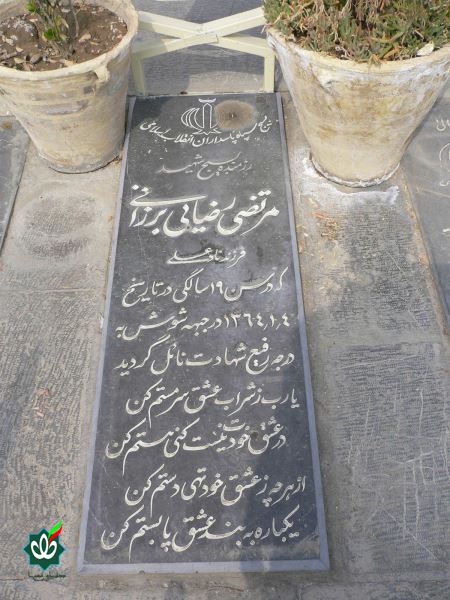 سپاه پاسداران انقلاب اسلامی
رزمنده بسیج شهید
مرتضی رضایی برزانی
فرزند نادعلی
که در سن ۱۹ سالگی در تاریخ
۱۳۶۴/۱/۴ در جبهه شوش به
درجه رفیع شهادت نائل گردید
یارب ز شراب عشق سرمستم کن
در عشق خودت نیست کنی هستم کن
از هر چه ز عشق خود تهی دستم کن
یکباره به بند عشق پابستم کن